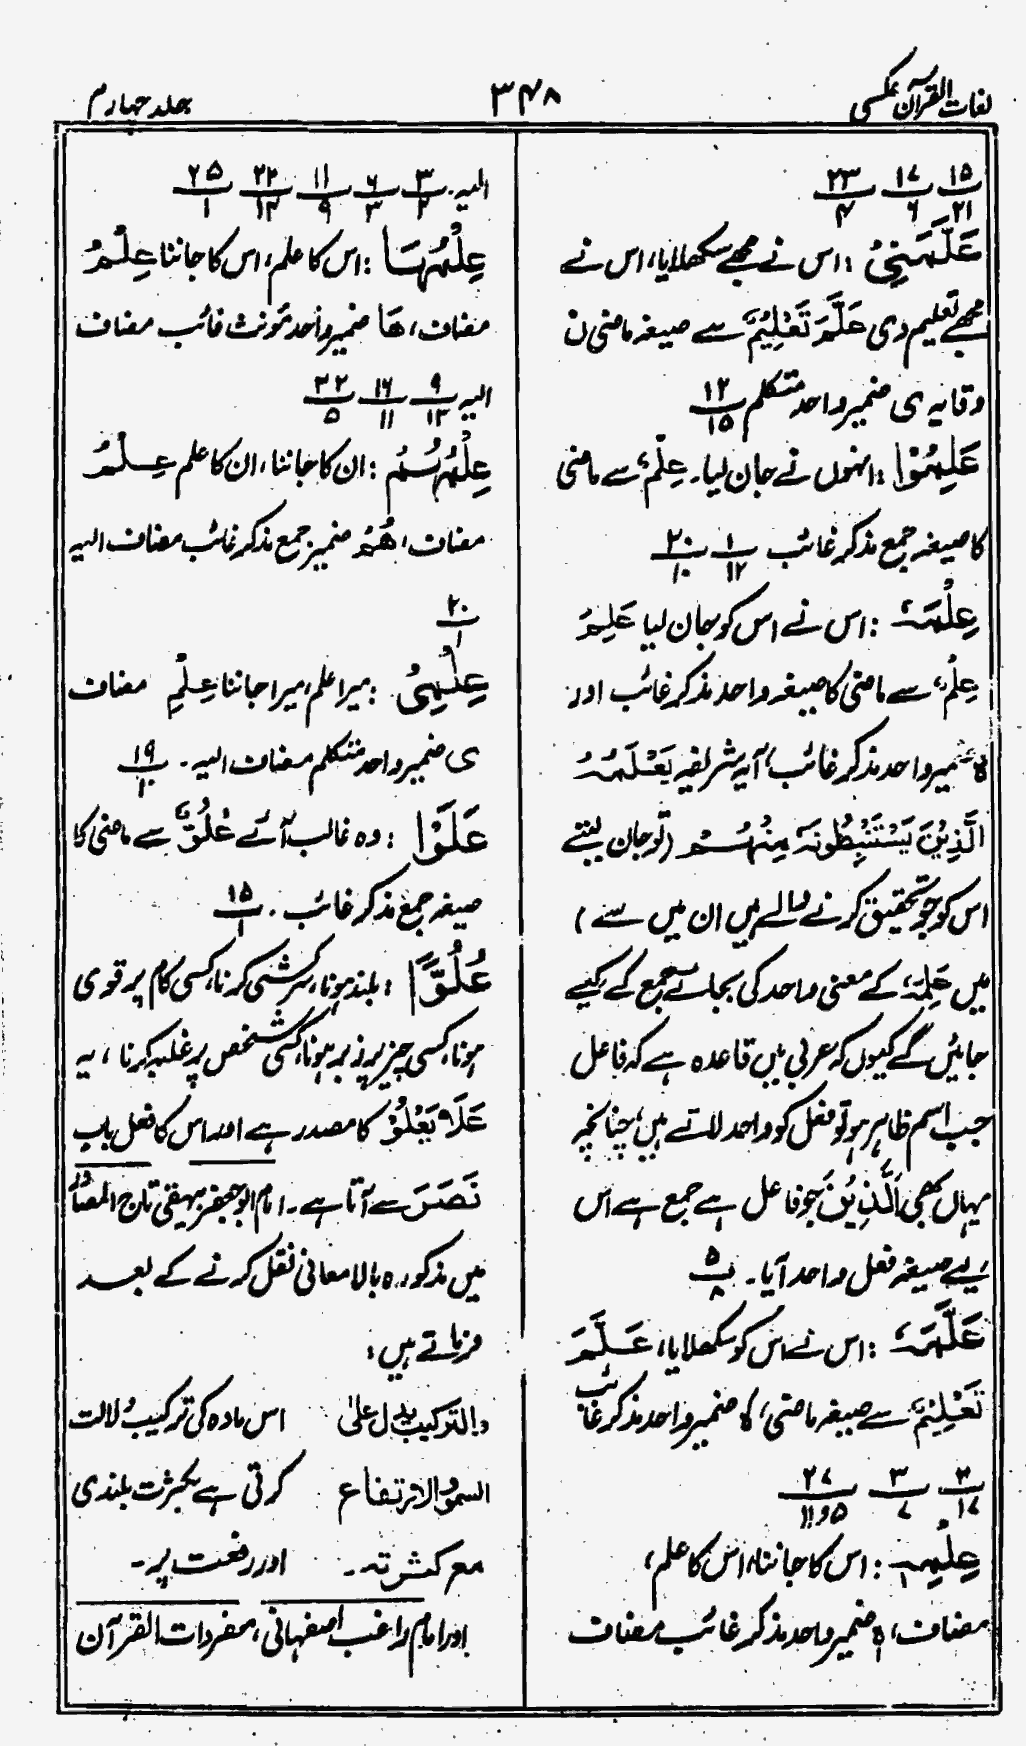 لغات القرآن عکسی
۳۴۸
جلد چهارم
۱۵/۲۱ ۱۷/۶ ۲۳/۴
عَلَّمَنِیْ : اس نے مجھے سکھلایا، اس نے
مجھے تعلیم دی عَلَّمَ تَعْلِیْمٌ سے صیغہ ماضی ن
وقایہ ی ضمیر واحد متکلم ۱۲/۱۵
عَلِمُوْا : انہوں نے جان لیا۔ عِلْمٌ سے ماضی
کا صیغہ جمع مذکر غائب ۱/۱۲ ۲۰/۱۰
عِلْمَہٗ : اس نے اس کو جان لیا عَلِمَ
عِلْمٌ سے ماضی کا صیغہ واحد مذکر غائب اور
ہٗ ضمیر واحد مذکر غائب، آیہ شریفہ یَعْلَمُہُ
الَّذِیْنَ یَسْتَنْبِطُوْنَہٗ مِنْہُمْ (تو جان لیتے
اس کو جو تحقیق کرنے والے ہیں ان میں سے)
میں عَلِمَہٗ کے معنی واحد کی بجائے جمع کے کیے
جائیں گے کیوں کہ عربی میں قاعدہ ہے کہ فاعل
جب اسم ظاہر ہو تو فعل کو واحد لاتے ہیں، چنانچہ
یہاں بھی اَلَّذِیْنَ جو فاعل ہے جمع ہے اس
لیے صیغہ فعل واحد آیا۔ ۵/۸
عَلَّمَہٗ : اس نے اس کو سکھلایا، عَلَّمَ
تَعْلِیْمٌ سے صیغہ ماضی، ہٗ ضمیر واحد مذکر غائب
۳/۱۷ ۳/۷ ۲۷/۵و۱۱
عِلْمِہٖ : اس کا جاننا، اس کا علم،
مضاف، ہٖ ضمیر واحد مذکر غائب مضاف
الیہ۔ ۳/۲ ۶/۳ ۱۱/۹ ۲۲/۱۴ ۲۵/۱
عِلْمُہَا : اس کا علم، اس کا جاننا عِلْمُ
مضاف، ھَا ضمیر واحد مؤنث غائب مضاف
الیہ ۹/۱۳ ۱۶/۱۱ ۲۲/۵
عِلْمُہُمْ : ان کا جاننا، ان کا علم عِلْمُ
مضاف، ھُمْ ضمیر جمع مذکر غائب مضاف الیہ
۲۰/۱
عِلْمِیْ : میرا علم، میرا جاننا عِلْمِ مضاف
ی ضمیر واحد متکلم مضاف الیہ۔ ۱۹/۱۰
عَلَوْا : وہ غالب آئے عُلُوٌّ سے ماضی کا
صیغہ جمع مذکر غائب۔ ۱۵/۱
عُلُوًّا : بلند ہونا، سرکشی کرنا، کسی کام پر قوی
ہونا، کسی چیز پر زبر ہونا، کسی شخص پر غلبہ کرنا، یہ
عَلَا یَعْلُوْ کا مصدر ہے اور اس کا فعل باب
نَصَرَ سے آتا ہے۔ امام ابو جعفر بیہقی تاج المصادر
میں مذکورہ بالا معانی نقل کرنے کے بعد
فرماتے ہیں :
والترکیب یدل علی اس مادہ کی ترکیب دلالت
السمو والارتفاع کرتی ہے بکثرت بلندی
مع کثرتہ۔ اور رفعت پر۔
اور امام راغب اصفہانی، مفردات القرآن